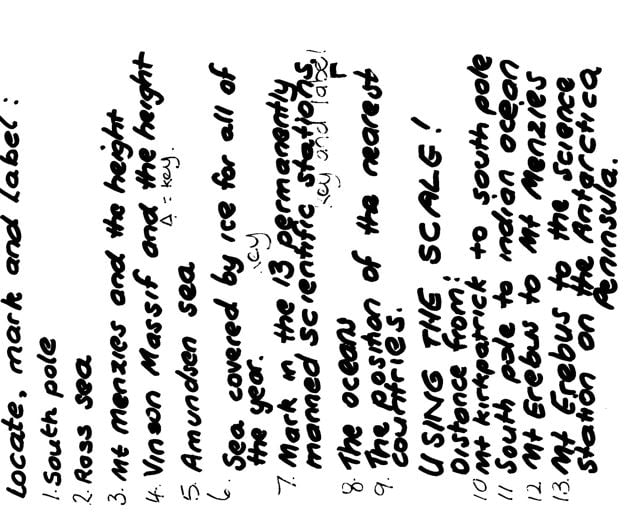 Locate, mark and Label:
1. South pole
2. Ross sea
3. Mt Menzies and the height
4. Vinson Massif and the height
Δ = key.
5. Amundsen sea
6. Sea covered by ice for all of
the year. key
7. Mark in the 13 permanently
manned scientific stations.
key and label!
8. The oceans
9. The position of the nearest
countries.
USING THE SCALE!
Distance from:
10 Mt Kirkpatrick to south pole
11 South pole to indian ocean
12. Mt Erebus to Mt Menzies
13. Mt Erebus to the science
station on the Antarctica
Peninsula.